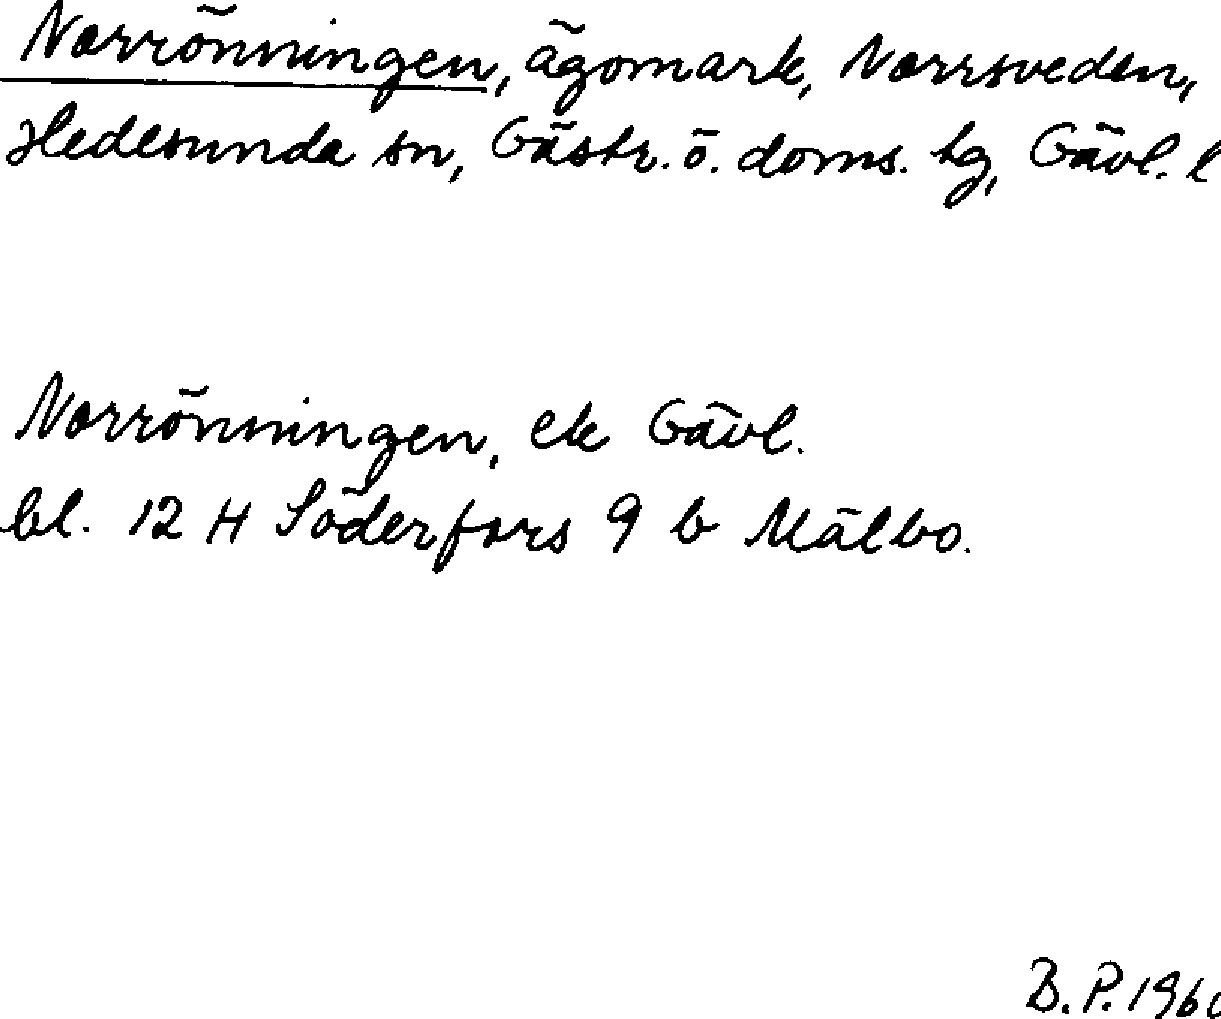 Norrönningen, ägomark, Norrsveden,
Hedesunda sn, Gästr. ö. doms. tg, Gävl. l
Norrönningen, ek Gävl.
bl. 12 H Söderfors 9 b Mälbo.
B. P. 1960